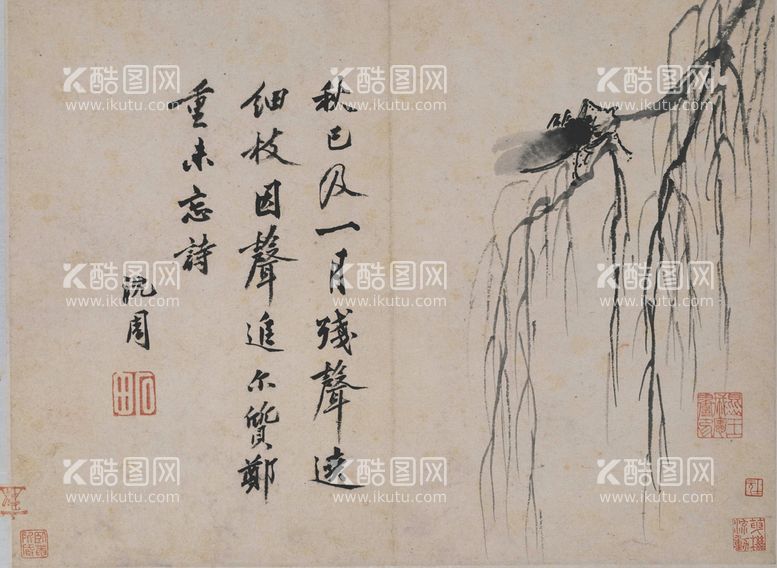 秋已及一月殘聲遶
細枝因聲進尔質鄭
重未忘詩
沈周
酷图网
www.ikutu.com
酷图网
www.ikutu.com
酷图网
www.ikutu.com
酷图网
www.ikutu.com
酷图网
www.ikutu.com
酷图网
www.ikutu.com
酷图网
www.ikutu.com
酷图网
www.ikutu.com
酷图网
www.ikutu.com